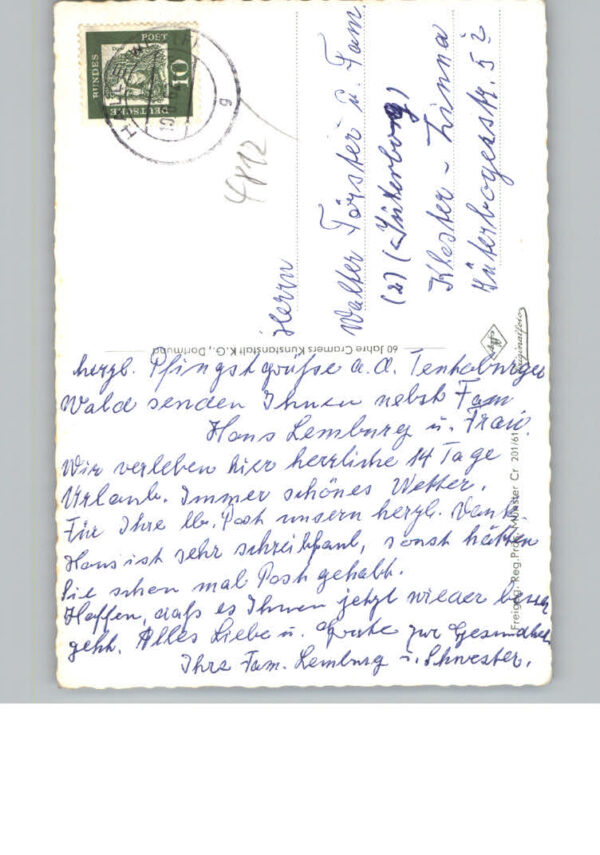 herzl. Pfingstgrüße a. d. Teutoburger
Wald senden Ihnen nebst Fam
Hans Lemburg u. Frau.
Wir verleben hier herrliche 14 Tage
Urlaub. Immer schönes Wetter.
Für Ihre lb. Post unsern herzl. Dank.
Hans ist sehr schreibfaul, sonst hätten
Sie schon mal Post gehabt.
Hoffen, daß es Ihnen jetzt wieder besser
geht. Alles Liebe u. Gute zur Gesundheit
Ihre Fam. Lemburg u. Schwester.
Herrn
Walter Förster u. Fam
(2) (Jüterbog)
Kloster-Zinna
Jüterbogerstr. 5
60 Jahre Cramers Kunstanstalt K.G., Dortmund
Agfa
Originalfoto
Freigeg. Reg. Präs. Münster Cr 201/61
DEUTSCHE
BUNDES
POST
10
g